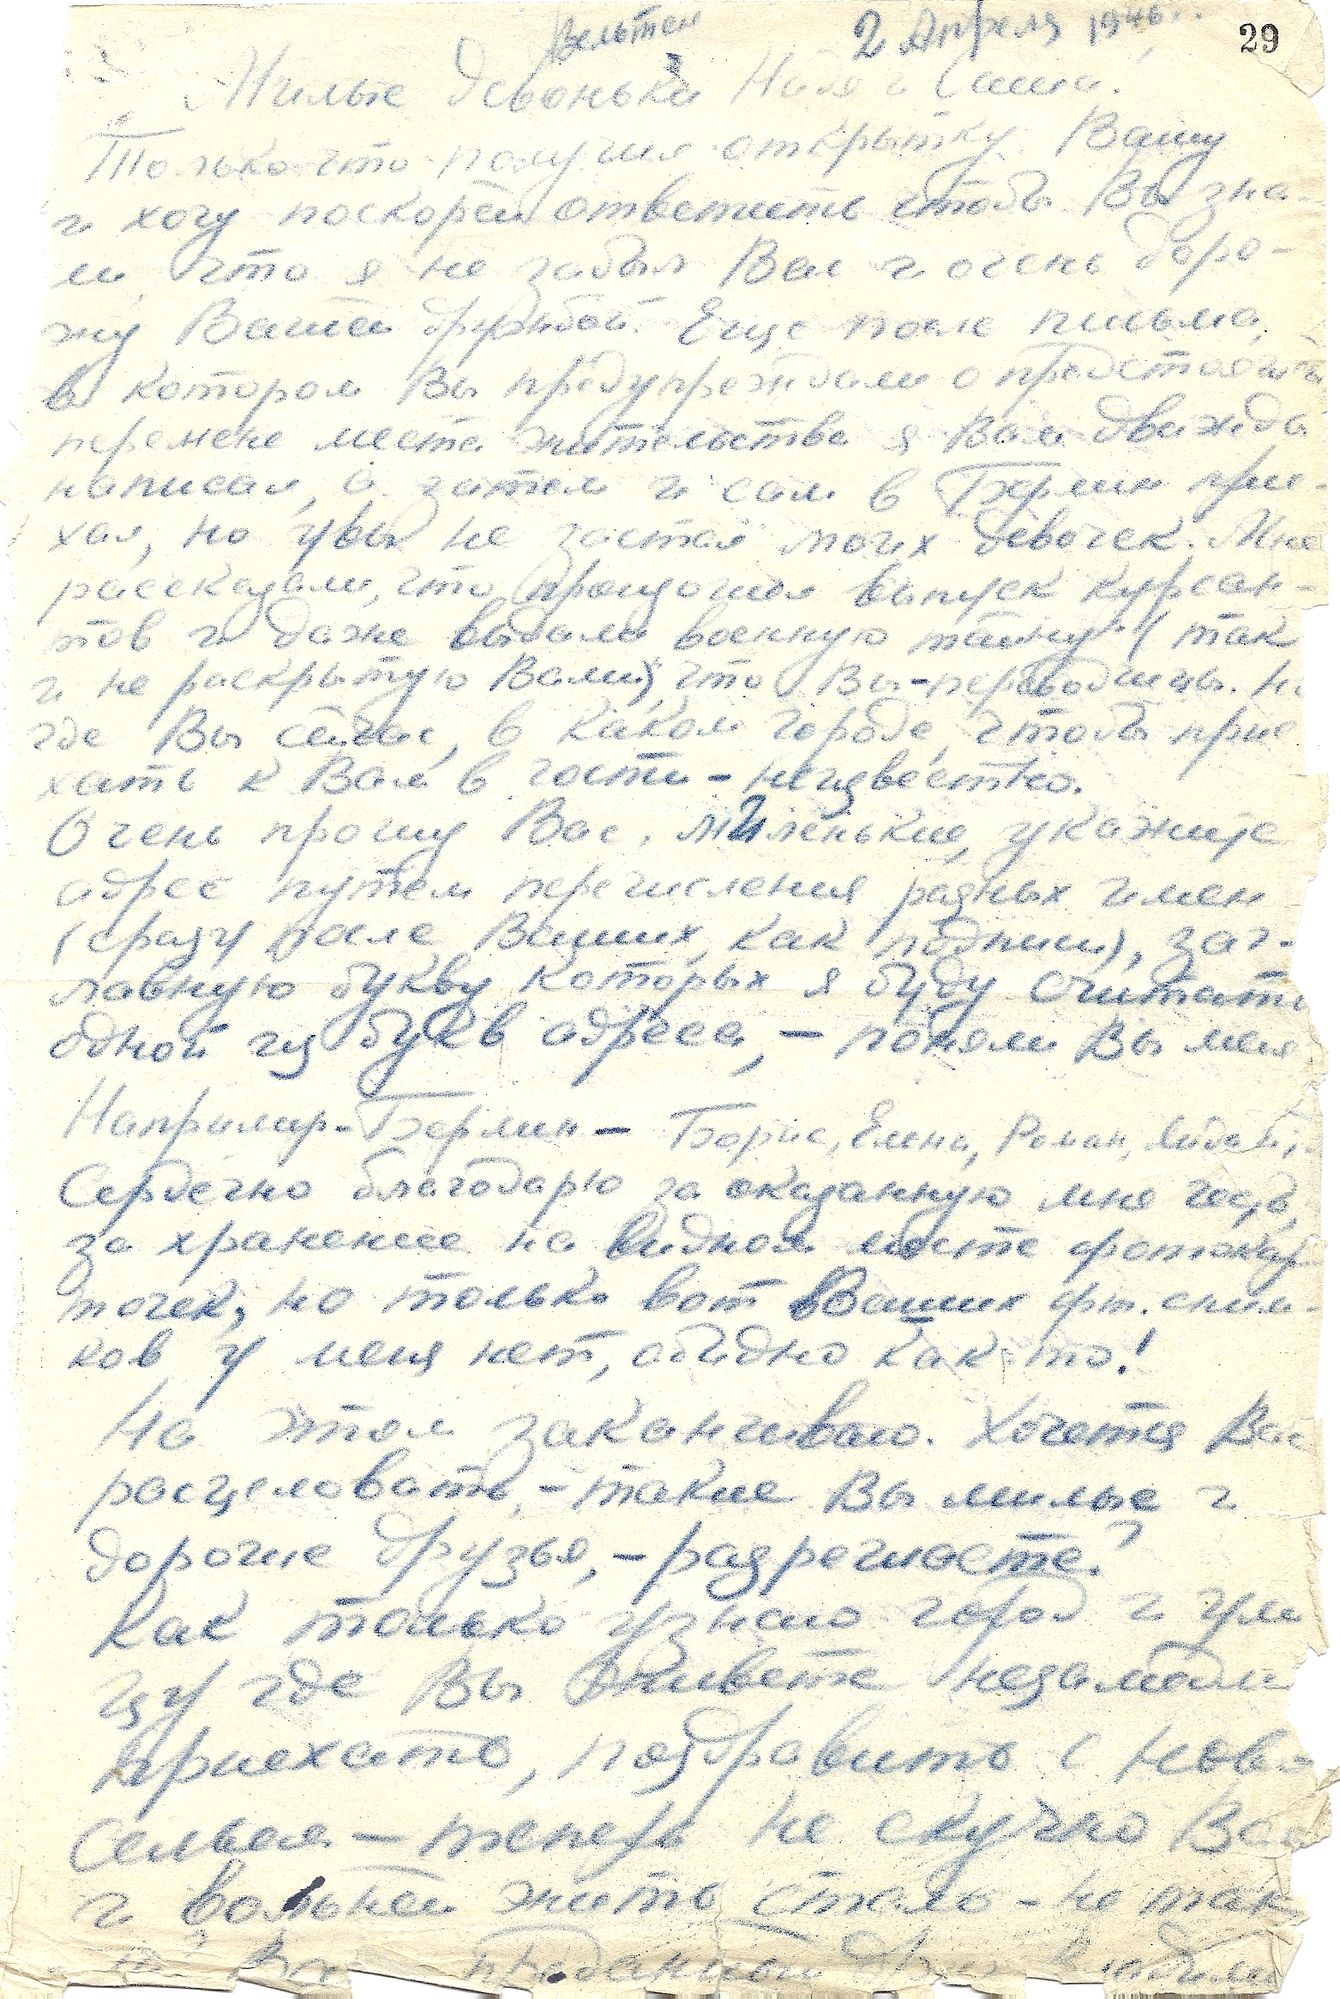 Вельтен 2 Апреля 1946 г. 29
Милые девоньки Надя и Саша!
Только что получил открытку Вашу
и хочу поскорей ответить чтобы Вы зна-
ли, что я не забыл Вас и очень доро-
жу Вашей дружбой. Еще после письма,
в котором Вы предупреждали о предстоящей
перемене места жительства я Вам дважды
написал, а затем и сам в Берлин прие-
хал, но увы не застал моих девочек. Мне
рассказали, что произошел выпуск курсан-
тов и даже выдали военную тайну (так
и не раскрытую Вами), что Вы-переводчицы. Но
где Вы сейчас, в каком городе, чтобы прие
хать к Вам в гости - неизвестно.
Очень прошу Вас, миленькие, укажите
адрес путем перечисления разных имен
(сразу после Ваших, как подписи), заг-
лавную букву которых я буду считать
одной из букв адреса, - поняли Вы меня
Например-Берлин - Борис, Елена, Роман,
Сердечно благодарю за оказанную мне честь,
за хранение на видном месте фотокар
точек, но только вот Ваших фот. сним-
ков у меня нет, обидно как-то!
На этом заканчиваю. Хочется Вас
расцеловать, - такие Вы милые и
дорогие друзья, - разрешаете?
Как только узнаю город и ули
цу где Вы живете незамедли
приехать, поздравить с ново
сельем - теперь не скучно Вам
и вольней жить стало - не так
Ваш преданный друг